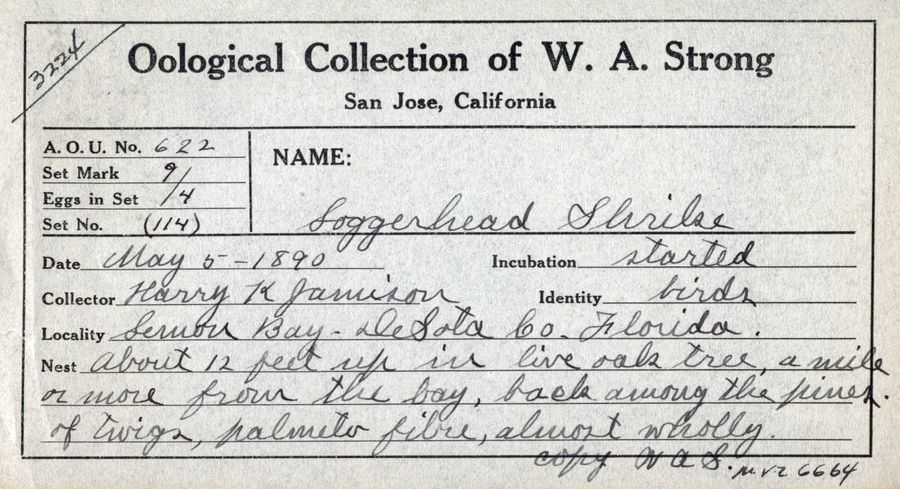 3224
Oological Collection of W. A. Strong
San Jose, California
A. O. U. No. 622
Set Mark 9/
Eggs in Set /4
Set No. (114)
NAME:
Loggerhead Shrike
Date May 5-1890
Incubation started
Collector Harry K Jamison
Identity birds
Locality Lemon Bay - DeSota Co. Florida.
Nest About 12 feet up in live oak tree, a mile
or more from the bay, back among the pines.
of twigs, palmeto fibre, almost wholly.
copy W A S. MVZ 6664